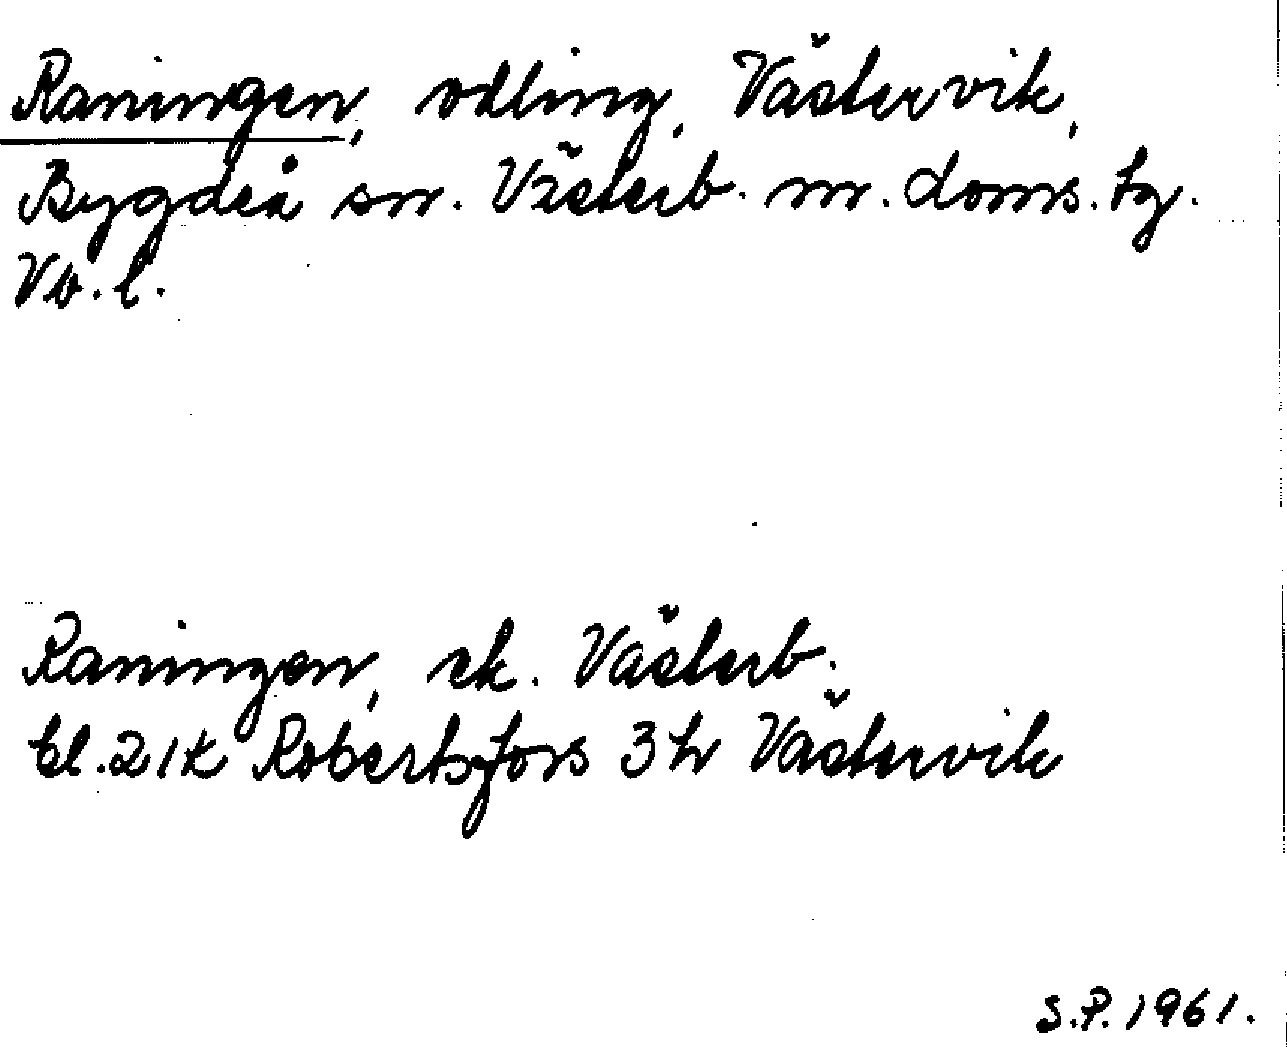 Raningen, odling, Västervik,
Bygdeå sn. Västerb. m. doms. tg.
Vb. l.
Raningen, ek. Västerb.
bl. 21K Robertsfors 3h Västervik
S.P. 1961.